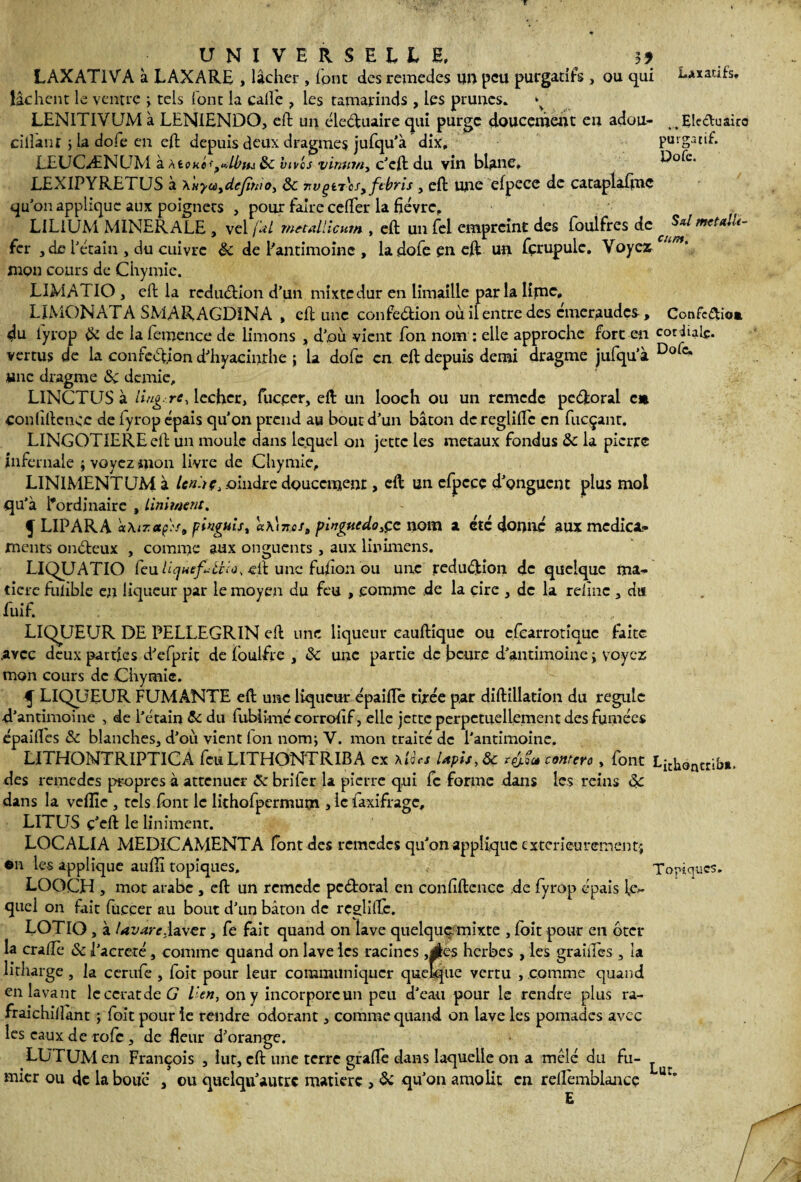 UNIVERSELLE. 33
LAXATIVA à LAXARE, lâcher, sont des remedes un peu purgatifs, ou qui Laxatifs.
lâchent le ventre ; tels sont la casse, les tamarinds, les prunes.
LENITIVUM à LENIENDO, est un électuaire qui purge doucement en adou- Electuaire
cissant ; la dose en est depuis deux dragmes jusqu'à dix. purgatif.
LEUCÆNUM à λευκὸς, album & οἶνος vinum, c'est du vin blanc. Dose.
LEXIPYRETUS à λήγω, definio, & πυρετὸς, febris, est une espece de cataplasme
qu'on applique aux poignets, pour faire cesser la fiévre.
LILIUM MINERALE, vel sal metallicum, est un sel empreint des soulfres de Sal metalli-
fer, de l'étain, du cuivre & de l'antimoine, la dose en est un scrupule. Voyez cum.
mon cours de Chymie.
LIMATIO, est la reduction d'un mixte dur en limaille par la lime.
LIMONATA SMARAGDINA, est une confection où il entre des émeraudes, Confection
du syrop & de la semence de limons, d'où vient son nom : elle approche fort en cordiale.
vertus de la confection d'hyacinthe ; la dose en est depuis demi dragme jusqu'à Dose.
une dragme & demie.
LINCTUS à lingere, lecher, succer, est un looch ou un remede pectoral en
consistence de syrop épais qu'on prend au bout d'un bâton de reglisse en sucçant.
LINGOTIERE est un moule dans lequel on jette les metaux fondus & la pierre
infernale ; voyez mon livre de Chymie.
LINIMENTUM à lenire, oindre doucement, est un espece d'onguent plus mol
qu'à l'ordinaire, liniment.
¶ LIPARA à λιπαρὸς, pinguis, à λίπος, pinguedo, ce nom a été donné aux medica-
ments oncteux, comme aux onguents, aux linimens.
LIQUATIO seu liquefactio, est une fusion ou une reduction de quelque ma-
tiere fusible en liqueur par le moyen du feu, comme de la cire, de la resine, du
suif.
LIQUEUR DE PELLEGRIN est une liqueur caustique ou escarrotique faite
avec deux parties d'esprit de soulfre, & une partie de beure d'antimoine ; voyez
mon cours de Chymie.
¶ LIQUEUR FUMANTE est une liqueur épaisse tirée par distillation du regule
d'antimoine, de l'étain & du sublimé corrosif, elle jette perpetuellement des fumées
épaisses & blanches, d'où vient son nom ; V. mon traité de l'antimoine.
LITHONTRIPTICA seu LITHONTRIBA ex λίθος lapis, & contero, sont Lithontriba.
des remedes propres à attenuer & briser la pierre qui se forme dans les reins &
dans la vessie, tels sont le lithospermum, le saxifrage.
LITUS c'est le liniment.
LOCALIA MEDICAMENTA sont des remedes qu'on applique exterieurement ;
on les applique aussi topiques. Topiques.
LOOCH, mot arabe, est un remede pectoral en consistence de syrop épais le-
quel on fait succer au bout d'un bâton de reglisse.
LOTIO, à lavare, laver, se fait quand on lave quelque mixte, soit pour en ôter
la crasse & l'acreté, comme quand on lave les racines, les herbes, les graisses, la
litharge, la ceruse, soit pour leur communiquer quelque vertu, comme quand
en lavant le cerat de G l'en, on y incorpore un peu d'eau pour le rendre plus ra-
fraichissant ; soit pour le rendre odorant, comme quand on lave les pomades avec
les eaux de rose, de fleur d'orange.
LUTUM en François, lut, est une terre grasse dans laquelle on a mêlé du fu- Lut.
mier ou de la bouë, ou quelqu'autre matiere, & qu'on amolit en ressemblance
E